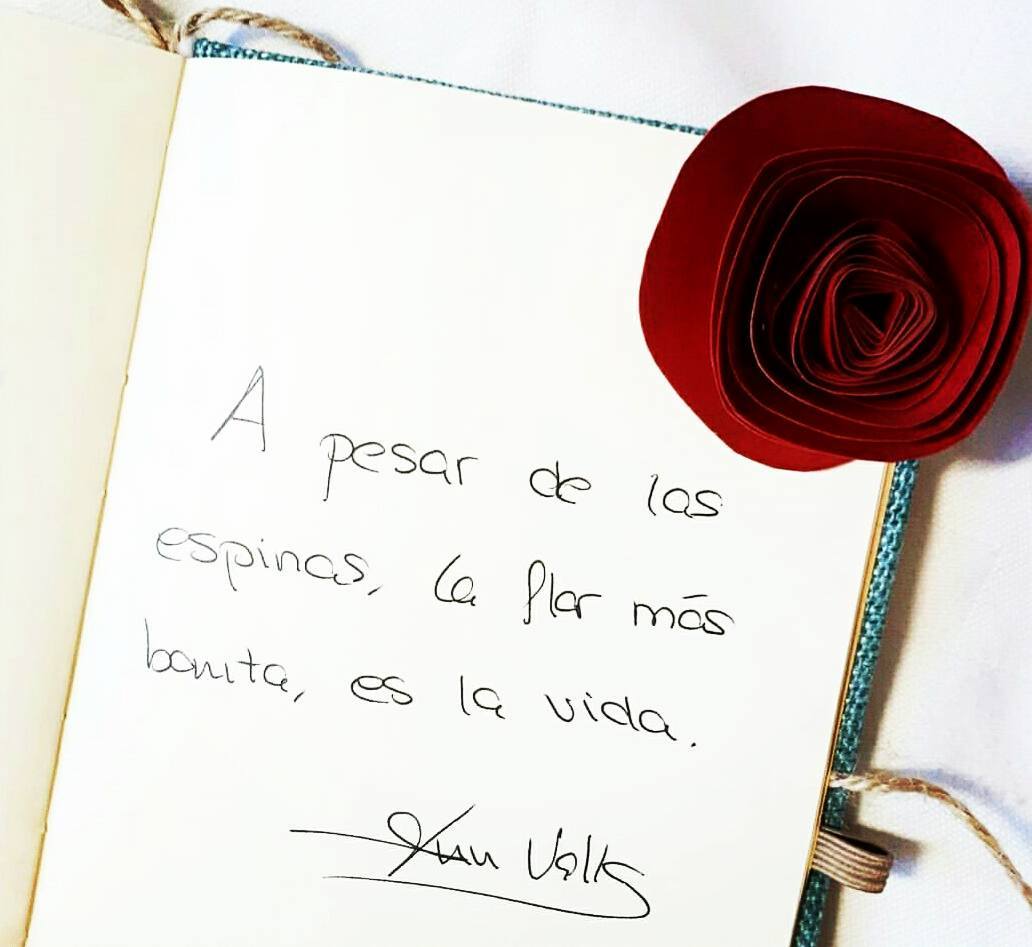 A pesar de las
espinas, la flor más
bonita, es la vida.